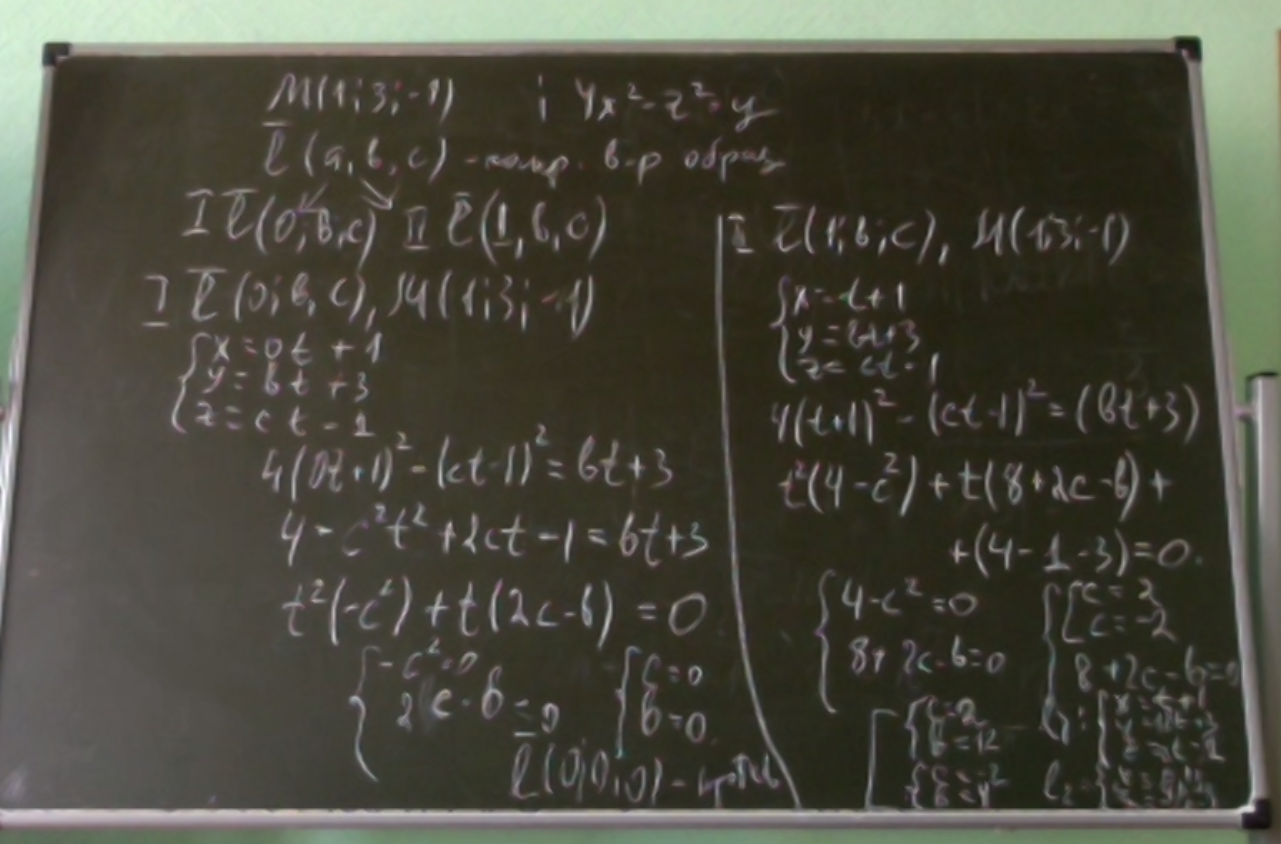 M(1;3;-1) і 4x²-z²=y
l̅(a,b,c) - в-р образ
I l̅(0,b,c) II l̅(1,b,c)
I l̅(0;b,c), M(1;3;-1)
{x=0t+1
y=bt+3
z=ct-1
4(0t+1)²-(ct-1)²=bt+3
4-c²t²+2ct-1=bt+3
t²(-c²)+t(2c-b)=0
{-c²=0 {c=0
2c-b=0 b=0
l̅(0;0;0) -
II l̅(1;b;c), M(1;3;-1)
{x=t+1
y=bt+3
z=ct-1
4(t+1)²-(ct-1)²=(bt+3)
t²(4-c²)+t(8+2c-b)+
+(4-1-3)=0.
{4-c²=0 {[c=2
c=-2
8+2c-b=0 8+2c-b=0
[{c=2 l₁:{x=t+1
b=12 y=12t+3
z=2t-1
l₂